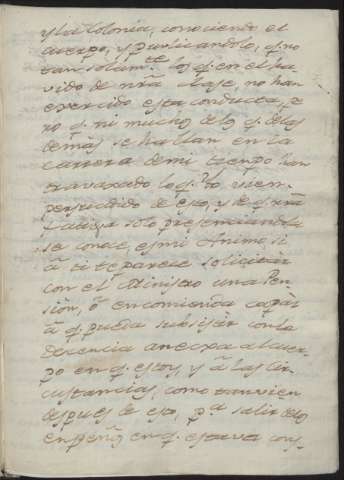 y la Colonia, conociendo el
cuerpo, y publicandolo, q.e no
tan solam.te los q.e en el ha
vido de nrã clase, no han
exercido esta conducta, pe
ro q.e ni muchos de los q.e de los
demas se hallan en la
carrera de mi tiempo han
travaxado lo q.e Yo vien
persuadido de esto, y de q.e nrã
fatiga solo presenciandola
se conoce, es mi Animo, si
à ti te parece solicitar
con el Ministro una Pen
sion, ò encomienda capáz
à q.e pueda subsistir con la
Decencia anexpa al cuer
po en q.e estoy, y à las cir
custancias, como tanvien
despues de esto, p.a salir delos
enpeños en q.e estava cons-